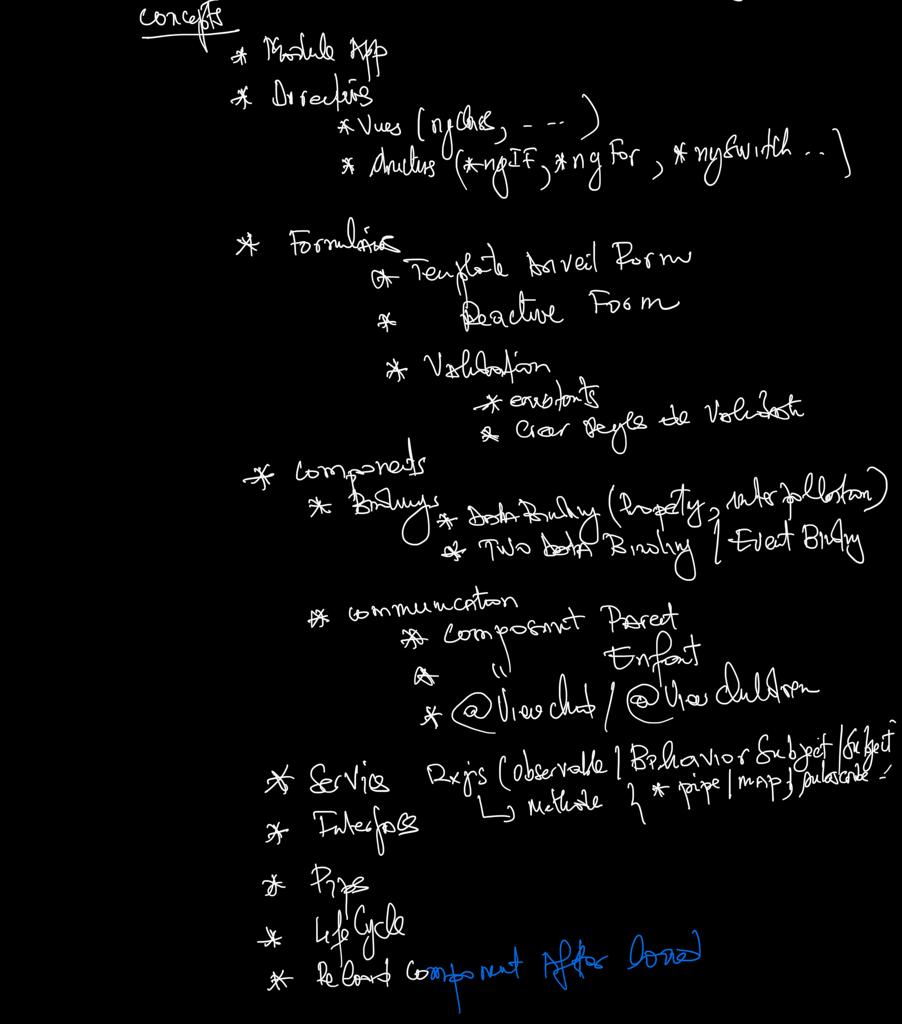 concepts
* Module App
* Directives
* Vues (ngClass, - -- )
* structurs (*ngIF, *ngFor, *ngSwitch .. ]
* Formulaires
* Template Driveil Form
* Reactive Form
* Validation
* existants
* Créer Regles de Validation
* Components
* Bindings
* Data Binding (Property, interpollation)
* Two Data Binding / Event Binding
* communication
* composant Parent
* " Enfant
* @ViewChild / @ViewChildren
* Service Rxjs (Observable / Behavior Subject / Subject
↳ Methode { * pipe / map,
* Interfaces
* Pipes
* Life Cycle
* Reload Component After loaed